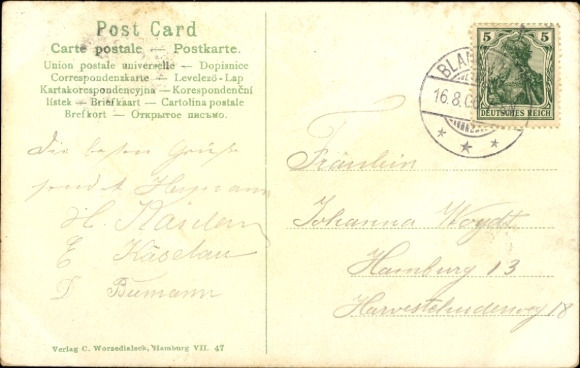 Post Card
Carte postale — Postkarte.
Union postale universelle — Dopisnice
Correspondenzkarte — Levelező-Lap
Kartakorespondencyjna — Korespondenční
lístek — Briefkaart — Cartolina postale
Brefkort — Открытое письмо.
Die besten Grüße
H. Käselau
E Käselau
Baumann
5 5
DEUTSCHES REICH
BLAN
16.8.0
Fräulein
Johanna Woydt
Hamburg 13
Harvestehuderweg 18
Verlag C. Worzedialeck, Hamburg VII. 47